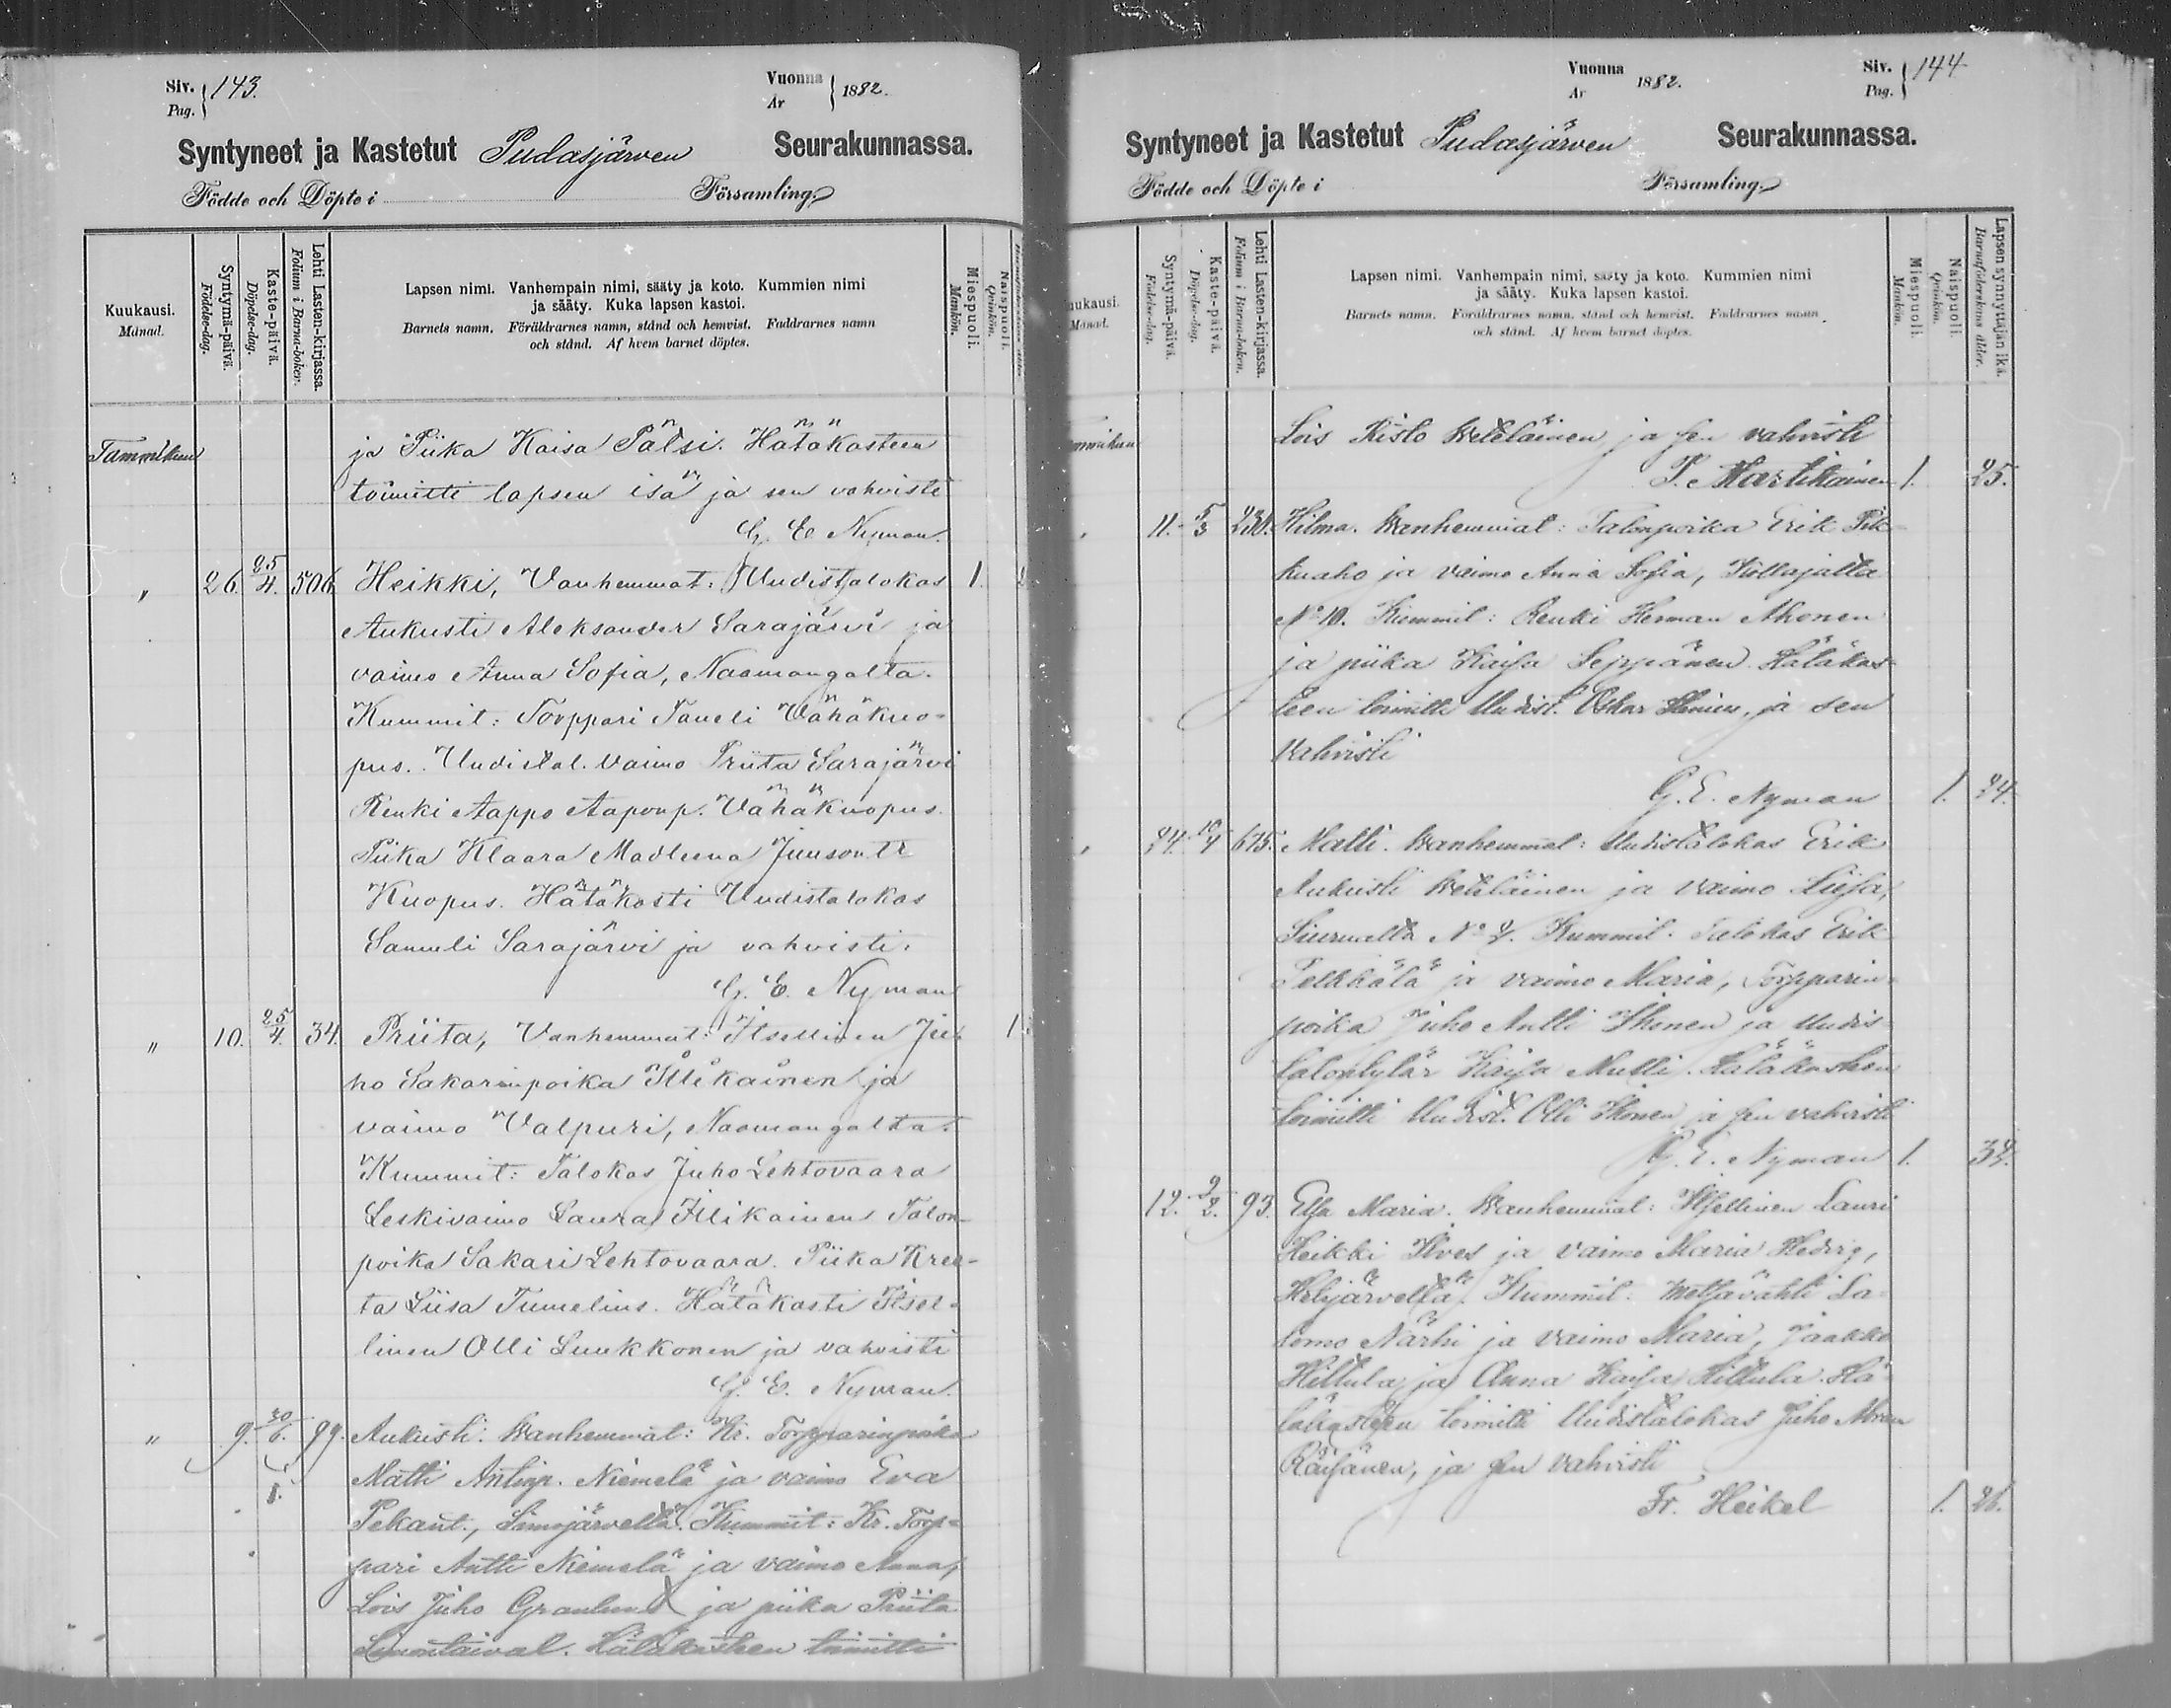 Siv. 143.
Pag.
Vuonna 1882.
År
Syntyneet ja Kastetut Pudasjärven Seurakunnassa.
Födde och Döpte i Församling.
Kuukausi.
Månad.
Syntymä-päivä.
Födelse-dag.
Kaste-päivä.
Döpelse-dag.
Lehti Lasten-kirjassa.
Folium i Barna-boken.
Lapsen nimi. Vanhempain nimi, sääty ja koto. Kummien nimi
ja sääty. Kuka lapsen kastoi.
Barnets namn. Föräldrarnes namn, stånd och hemvist. Faddrarnes namn
och stånd. Af hvem barnet döptes.
Miespuoli.
Mankön.
Naispuoli.
Qvinkön.
Tammikuu ja Piika Kaisa Pätsi. Hätäkasteen
toimitti lapsen isä ja sen vahvisti
G. E. Nyman.
" 26. 25/4. 506. Heikki, Vanhemmat: Uudistalokas 1.
Aukusti Aleksander Sarajärvi ja
vaimo Anna Sofia, Naamangalta.
Kummit: Torppari Taneli Vähäkuo-
pus. Uudistal. vaimo Priita Sarajärvi
Renki Aappo Aaponp. Vähäkuopus.
Piika Klaara Madleena Juusontr
Kuopus. Hätäkasti Uudistalokas
Samuli Sarajärvi ja vahvisti.
G. E. Nyman
" 10. 25/4. 34. Priita, Vanhemmat: Itsellinen Ju- 1.
ho Sakarinpoika Illikainen ja
vaimo Valpuri, Naamangalta.
Kummit: Talokas Juho Lehtovaara
Leskivaimo Laura Illikainen Talon-
poika Sakari Lehtovaara. Piika Kree-
ta Liisa Tumelius. Hätäkasti Itsel-
linen Olli Luukkonen ja vahvisti
G. E. Nyman.
" 9. 30/6. 99. Aukusti. Wanhemmat: Kr. Torpparinpoika
Matti Antinp. Niemelä ja vaimo Eva
Pekant., Simojärveltä. Kummit: Kr. Torp-
pari Antti Niemelä ja vaimo Anna,
Lois Juho Granlund ja piika Priita
Simontaival. Hätäkasteen toimitti
Vuonna 1882.
Ar
Siv. 144
Pag.
Syntyneet ja Kastetut Pudasjärven Seurakunnassa.
Födde och Döpte i Församling.
uukausi.
Månad.
Syntymä-päivä.
Födelse-dag.
Kaste-päivä.
Döpelse-dag.
Lehti Lasten-kirjassa.
Folium i Barna-boken.
Lapsen nimi. Vanhempain nimi, sääty ja koto. Kummien nimi
ja sääty. Kuka lapsen kastoi.
Barnets namn. Föräldrarnes namn, stånd och hemvist. Faddrarnes namn
och stånd. Af hvem barnet döptes.
Miespuoli.
Mankön.
Naispuoli.
Qvinkön.
Lapsen synnyttäjän ikä.
Barnaföderskans ålder.
Lois Risto Weteläinen ja sen vahvisti
P. Martikainen 1. 25.
11. 5/3 230. Hilma. Wanhemmat: Talonpoika Erik Pik-
kuaho ja vaimo Anna Sofia,
No 10. Kummit: Renki Herman Ahonen
ja piika Kaisa Seppänen. Hätäkas-
teen toimitti Uudist. Oskar ja sen
vahvisti
G. E. Nyman 1. 24.
24. 10/4 675. Matti. Wanhemmat: Uudistalokas Erik
Aukusti Weteläinen ja vaimo Liisa,
Siurualta No 4. Kummit. Talokas Erik
Pelkkälä ja vaimo Maria, Torpparin-
poika Juho Antti Ihonen ja Uudis-
talontytär Kaisa Mutti. Hätäkasteen
toimitti Uudist. Olli Ihonen ja sen vahvisti
G. E. Nyman 1. 34.
12. 2/2. 93. Elsa Maria. Wanhemmat: Itsellinen Lauri
Heikki Ilves ja vaimo Maria Hedvig,
Kummit: Metsävahti Sa-
lomo Närhi ja vaimo Maria, Jaakko
Hiltula ja Anna Kaisa Hiltula. Hä-
täkasteen toimitti Uudistalokas Juho
Räisänen, ja sen vahvisti
Fr. Heikel 1. 26.